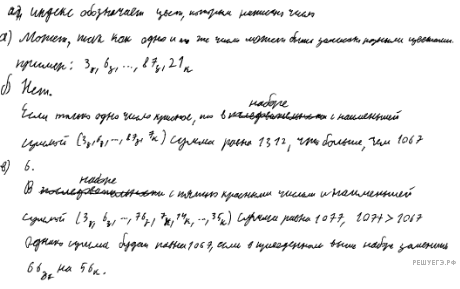 a_д, индекс обозначает цвет, которым написано число
а) Может, так как одно и то же число может быть записано разными цветами.
пример: 3_з, 6_з, ..., 87_з, 21_к
б) Нет.
наборе
Если только одно число красное, то в последовательности с наименьшей
суммой (3_з, 6_з, ..., 87_з, 7_к) сумма равна 1312, что больше, чем 1067
в) 6.
наборе
В последовательности с пятью красными числами и наименьшей
суммой (3_з, 6_з, ..., 76_з, 7_к, 14_к, ..., 35_к) сумма равна 1077, 1077 > 1067
Однако сумма будет равна 1067, если в приведенном выше наборе заменить
66_з на 56_к.
РЕШУЕГЭ.РФ